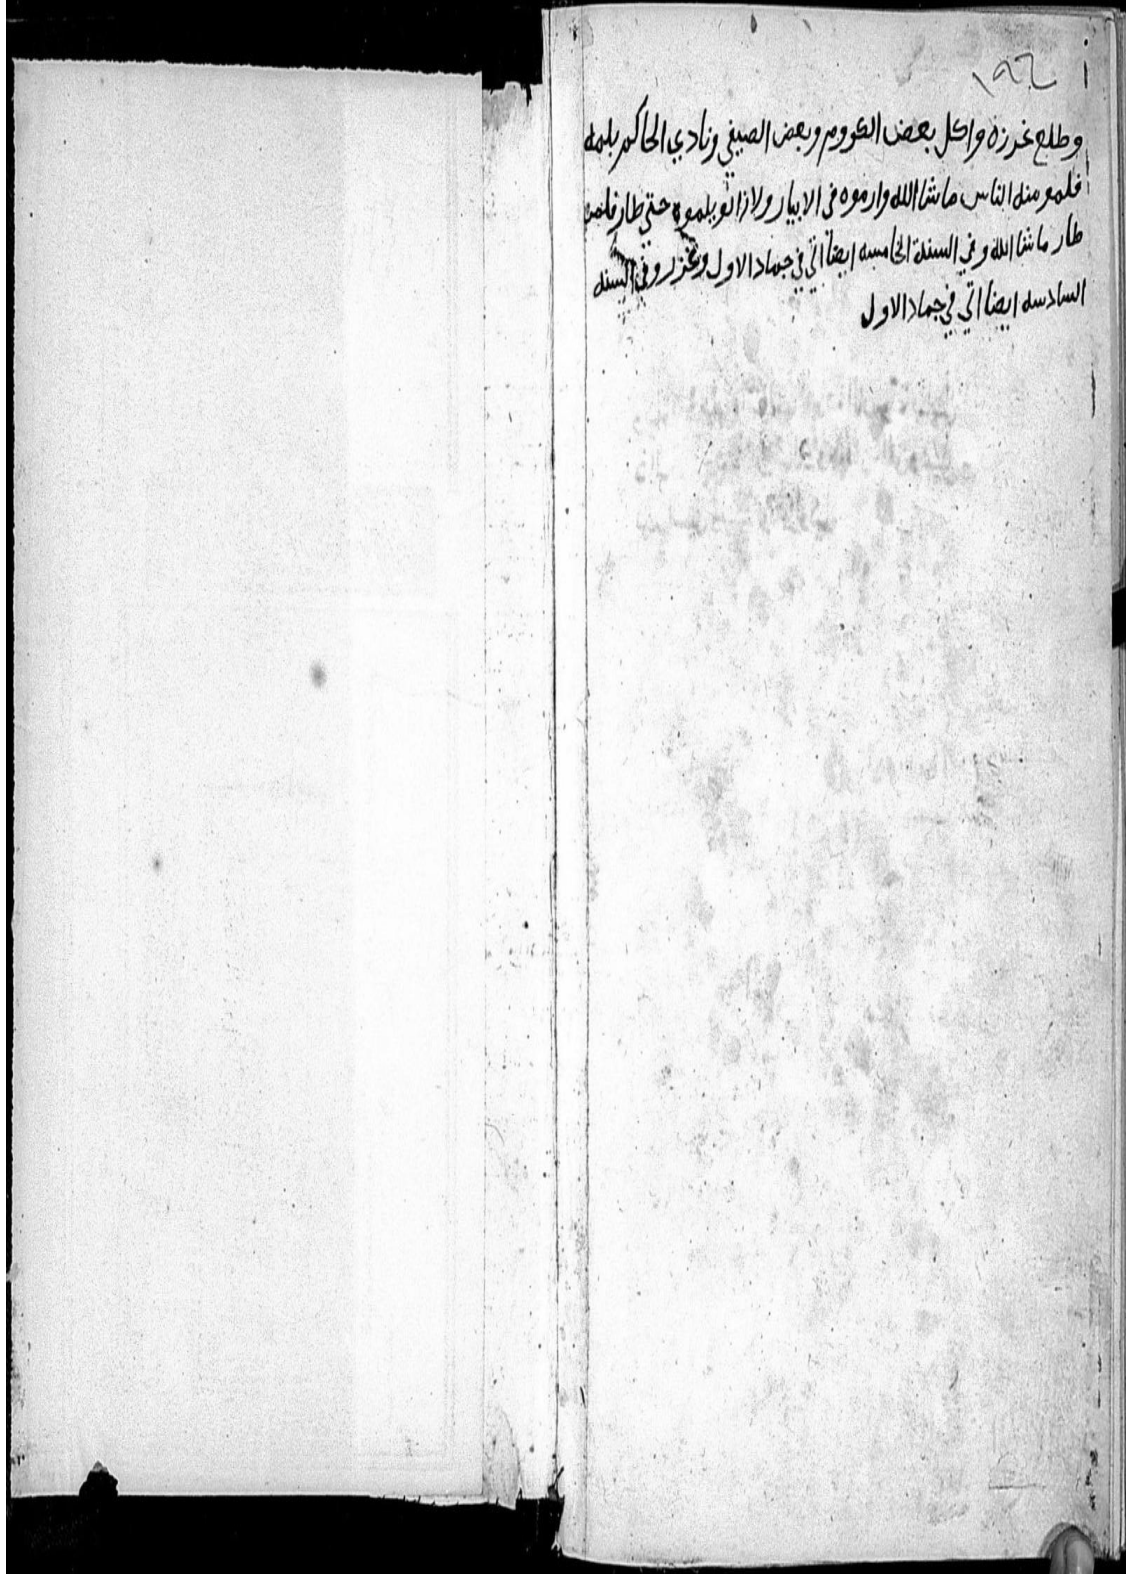 ١٩٦
وطلع غرزه واكل بعض الكروم وبعض الصيفي ونادي الحاكم بلمه
فلمو منه الناس ما شا الله وارموه في الابيار ولازالو يلموه حتي طار فلمن
طار ما شا الله وفي السنة الخامسه ايضا اتي في جماد الاول وغرز وفي السنه
السادسه ايضا اتي في جماد الاول